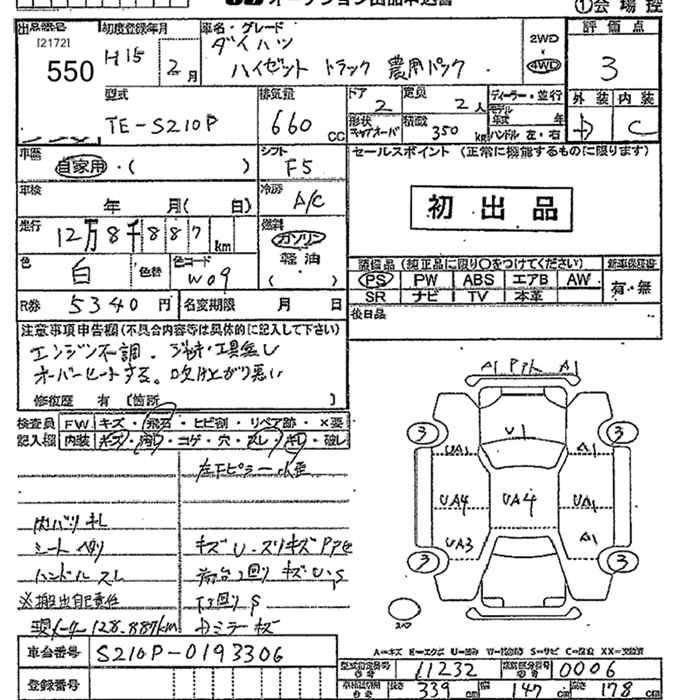 ①会場控
出品番号 [2172] 550
初度登録年月 H15 2月
車名・グレード ダイハツ
ハイゼット トラック 農用パック
2WD
4WD
評価点 3
外装 内装 C
型式 TE-S210P
排気量 660 CC
ドア 2
定員 2人
ディーラー・並行
モデル年式 年
形状 キャブオーバ
積載 350 KG
ハンドル 左・右
車歴 自家用・( )
シフト F5
セールスポイント (正常に機能するものに限ります)
初出品
車検 年 月( 日)
冷房 A/C
走行 12万8千887km
燃料 ガソリン
軽油
( )
色 白 色替
色コード W09
装備品 (純正品に限り○をつけてください)
PS PW ABS エアB AW
SR ナビ TV 本革
新車保証書 有・無
R券 5340円
名変期限 月 日
後日品
注意事項申告欄(不具合内容等は具体的に記入して下さい)
エンジン不調。ジャッキ・工具無し
オーバーヒートする。吹け上がり悪い
修復歴 有 [箇所 ]
検査員
記入欄
FW キズ・飛石・ヒビ割・リペア跡・×要
内装 キズ・汚れ・コゲ・穴・スレ・キレ・破レ
内バリ キレ
シート ヘタリ
ハンドル スレ
※搬出自己責任
キズU・スリキズ
荷台回りキズU・S
下回りS
A1 A1
U1
3 3
UA1 A1
UA4 UA4 UA1
UA3 A1
3 3
スペア
A=キズ E=エクボ U=凹み W=補修跡 S=サビ C=腐食 XX=交換済
車台番号 S210P-0193306
型式指定番号 11232
類別区分番号 0006
長さ 339 CM 幅 147 CM 高さ 178 CM